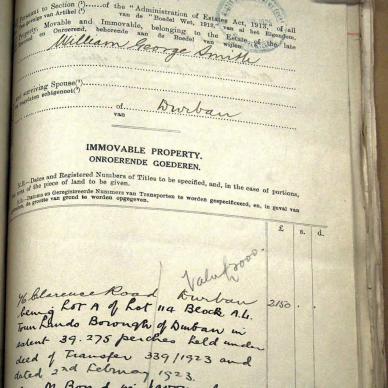 Pursuant to Section (¹)...of the "Administration of Estates Act, 1913," of all
van de "Boedel Wet, 1913," van al het Eigendom,
Property, Movable and Immovable, belonging to the Estate of the late
en Onroerend, behorende aan de Boedel van wijlen
William George Smith
and surviving Spouse(³)
of Durban
van
IMMOVABLE PROPERTY.
ONROERENDE GOEDEREN.
N.B.—Dates and Registered Numbers of Titles to be specified, and, in the case of portions,
area of the piece of land to be given.
N.B.—Datums en Geregistreerde Nummers van Transporten te worden gespecificeerd, en, in geval van
de grootte van grond te worden opgegeven.
£ s. d.
Valuation
Clarence Road Durban 2150 . .
being Lot A of Lot 114 Block A.L.
Town Lands Borough of Durban in
extent 39.275 perches held under
deed of Transfer 339/1923 and
dated 2nd February 1923.
M Bond in favour